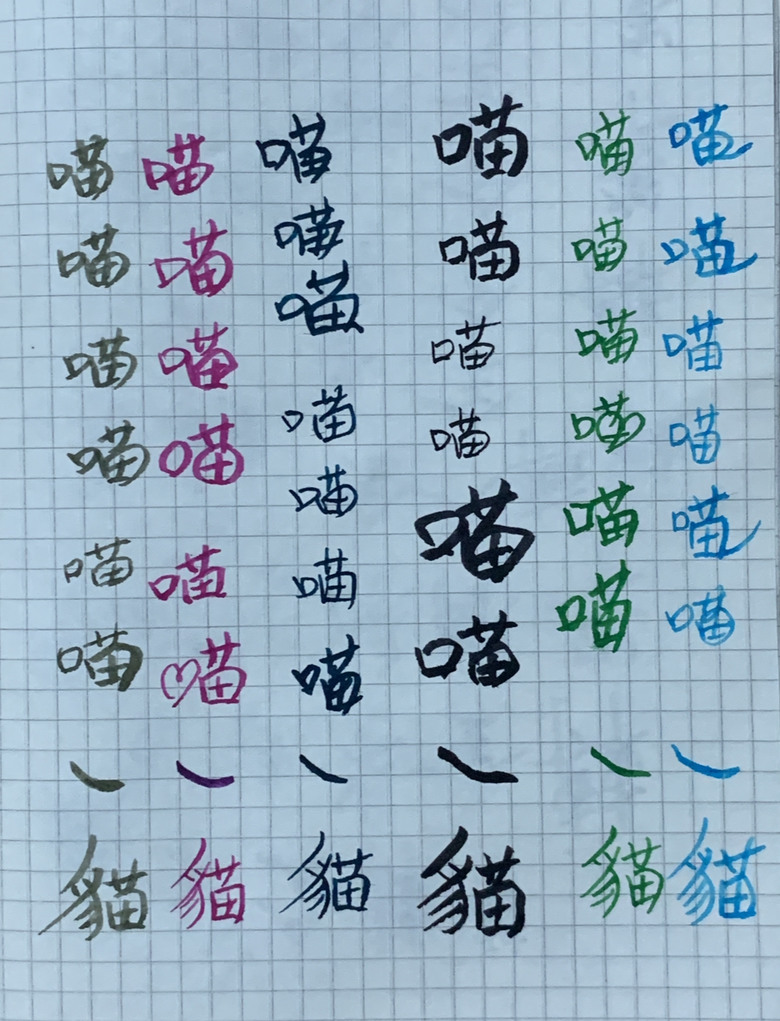 喵喵喵喵喵喵～貓
喵喵喵喵喵喵～貓
喵喵喵喵喵喵～貓
喵喵喵喵喵喵喵～貓
喵喵喵喵喵喵～貓
喵喵喵喵喵喵～貓